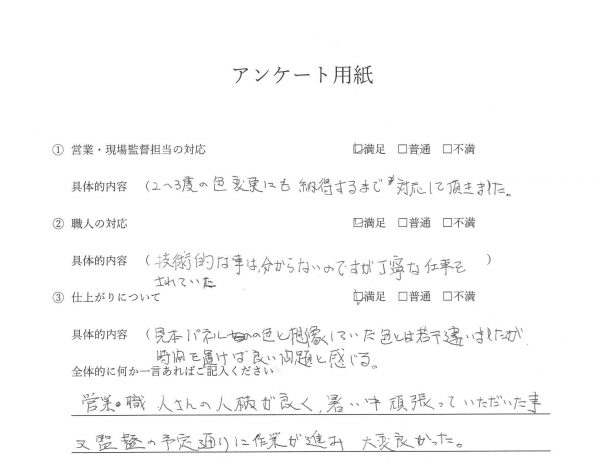 アンケート用紙
① 営業・現場監督担当の対応 ☑満足 □普通 □不満
具体的内容 (2〜3度の色変更にも納得するまで対応して頂きました。
② 職人の対応 ☑満足 □普通 □不満
具体的内容 (技術的な事は分からないのですが丁寧な仕事を )
されていた
③ 仕上がりについて ☑満足 □普通 □不満
具体的内容 (見本パネルの色と想像していた色とは若干違いましたが
時間を置けば良い問題と感じる。
全体的に何か一言あればご記入ください
営業・職人さんの人柄が良く、暑い中頑張っていただいた事
又監督の予定通りに作業が進み 大変良かった。